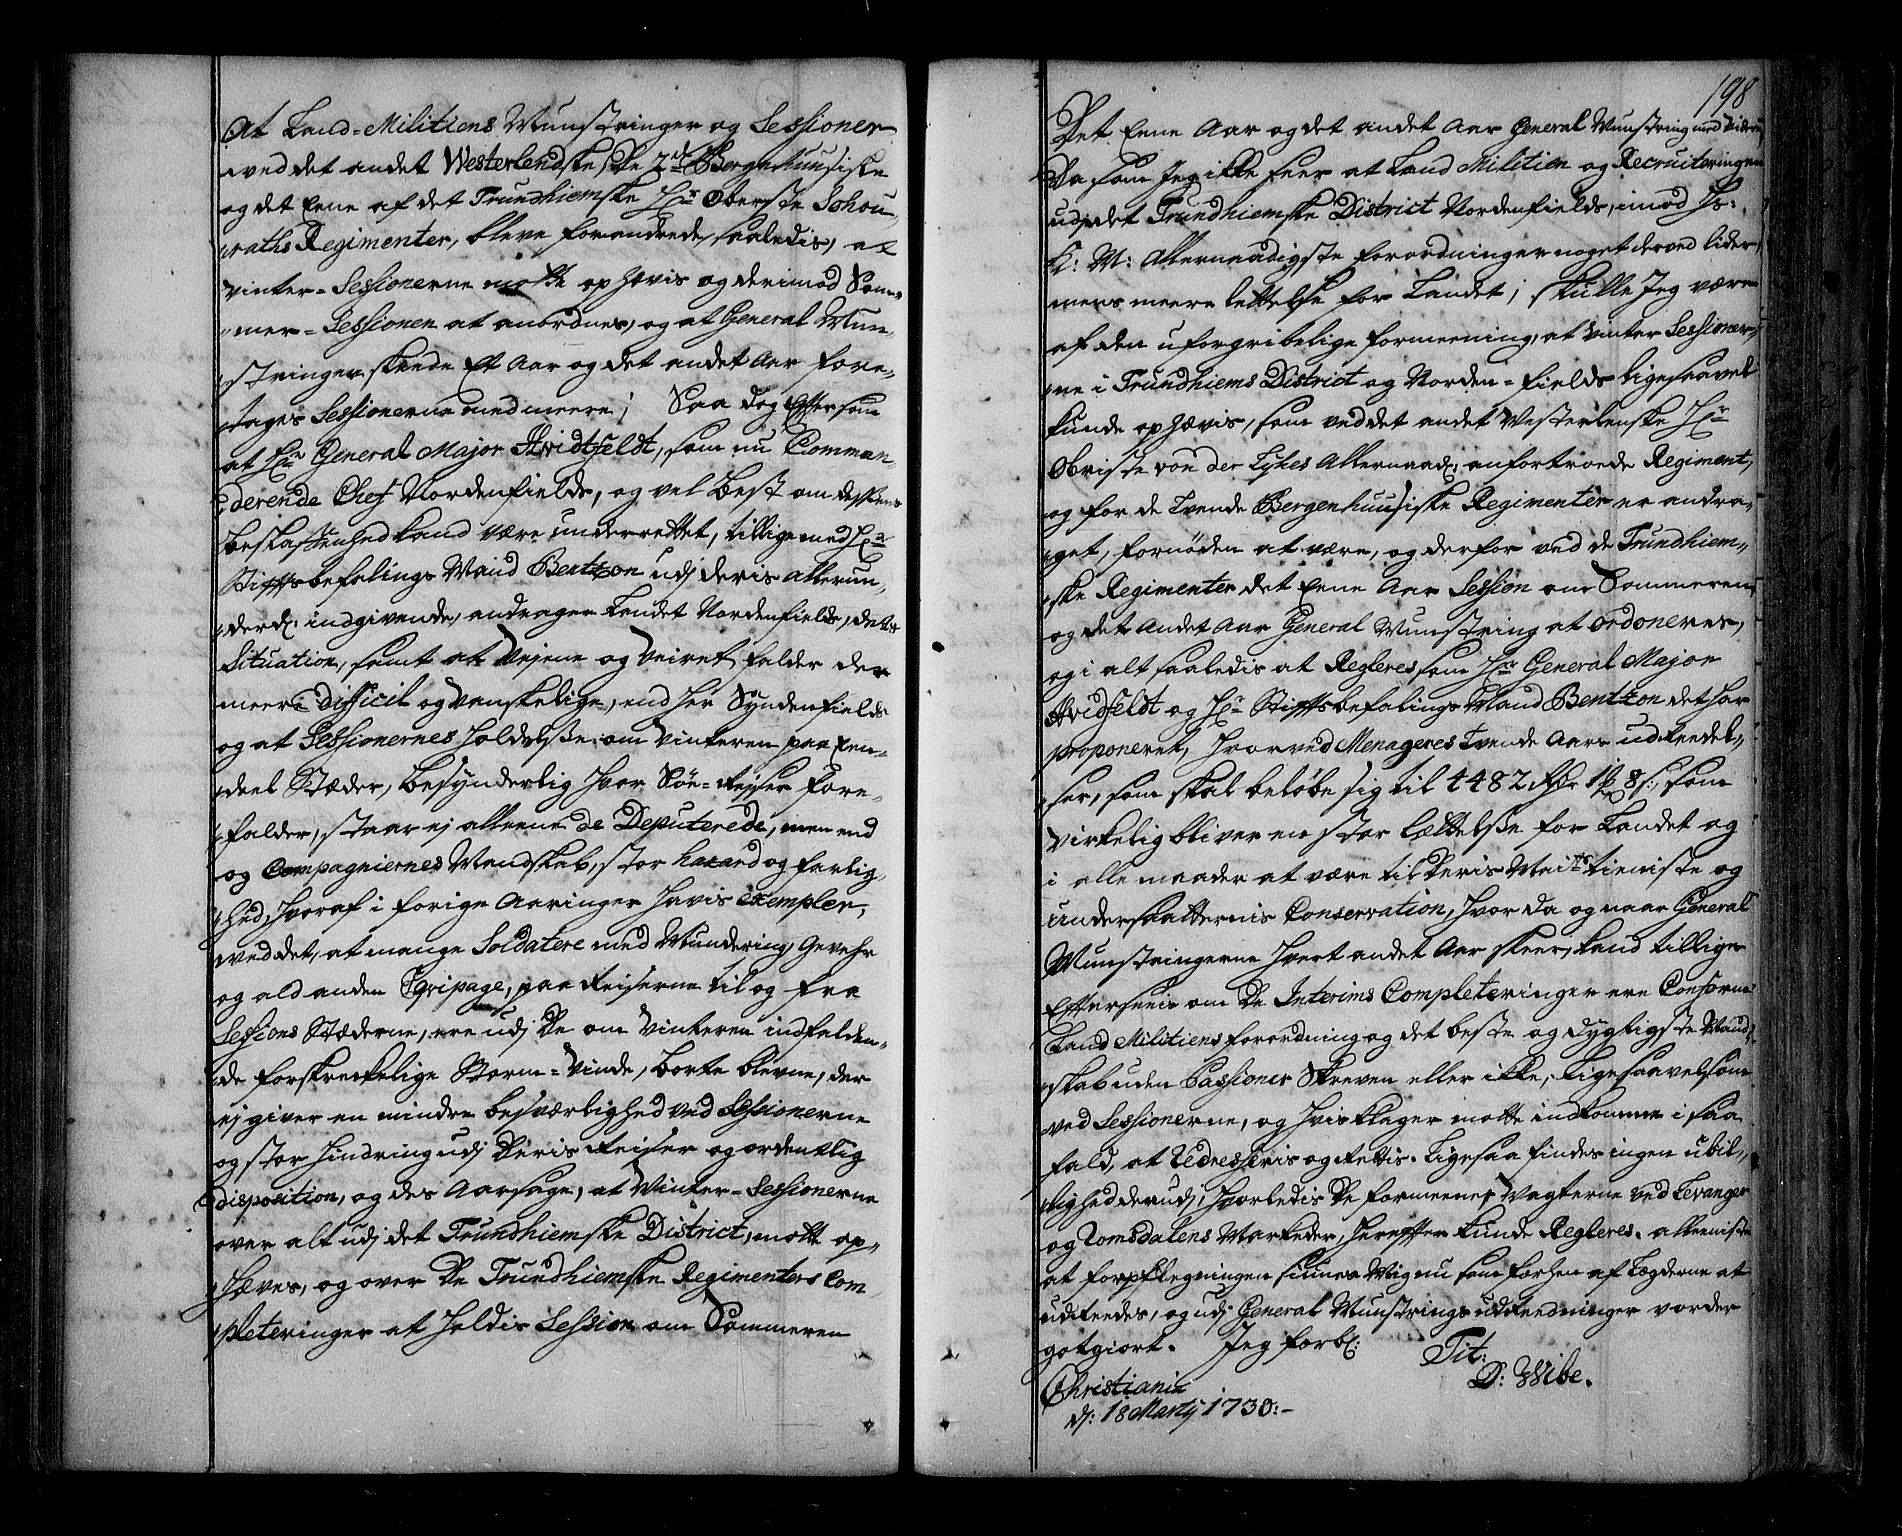 At Land-Militiens Munstringer og Sessioner
ved det andet Westerlendske, De 2de Bergenhuusiske
og det Eene af det Trundhiemske Hr Oberste Schou-
raths Regimenter, bleve forandrede, saaledis, at
Vinter-Sessionerne motte ophævis og derimod Som-
mer-Sessionen at anordnes, og at General Mun-
stringer skeede Et Aar og det andet Aar fore-
tages Sessionerne med meere; Saa dog Eftersom
at Hr General Major Hvidtfeldt, som nu Comman-
derende Chef Nordenfields, og vel best om dessens
beskaffenhed kand være underrettet, tillige med Hr
Stiftsbefalings Mand Bentzon udj deris allerun-
derd: indgivende, andrager Landet Nordenfields, dets
Situation, samt at Vejene og Veiret falder der
meere difficil og vanskelige, end her Syndenfields
og at Sessionernes Holdelsse om Vinteren paa Een-
deel Stæder, besynderlig hvor Söe-Rejser fore-
falder, staar ej alleene de Deputerede, men end
og Compagniernes Mandskab, stor hazard og farlig-
hed, hvoraf i forige Aaringer havis exempler,
ved det, at mange Soldatere med Mundering, Gevehr
og ald anden Eqvipage, paa Reiserne til og fra
Sessions Stæderne, ere udj De om Vinteren indfalden-
de forskreckelige Storm-Vinde, borte blevne, der
ej giver en mindre besværlighed ved Sessionerne
og stor Hindring udj Deris Reiser og ordentlig
disposition, og des Aarsage, at Winter-Sessionerne
over alt udj det Trundhiemske District, motte op-
hæves, og over De Trundhiemske Regimenters Com-
pleteringer at holdis Session om Sommeren
198
Det Eene Aar og det andet Aar General Munstring med videre,
Da som Jeg ikke seer at Land Militien og Recruiteringen
udj det Trundhiemske District Nordenfields, imod Hs:
K: M: Allernaadigste forordninger noget derved lider,
mens meere lettelse for Landet; skulle Jeg være
af den uforgribelige formeening, at Vinter Sessioner-
ne i Trundhiems District og Norden-fields ligesaavel
kunde ophævis, som ved det andet Westerlenske Hr
Obriste von der Lykes Allernaad: anfortroede Regiment,
og for de tvende Bergenhuusiske Regimenter er andra-
get, fornöden at være, og derfor ved de Trundhiem-
ske Regimenter det Eene Aar Session om Sommeren
og det Andet Aar General Munstring at ordoneres,
og i alt saaledis at Regleres som Hr General Major
Hvidfeldt og Hr Stiftsbefalings Mand Bentzon det har
proponeret, hvorved Menageres tvende Aars udreedel-
ser, som skal belöbe sig til 4482 Rdr 1 8 s:, som
virkelig bliver en stor lættelsse for Landet og
i alle maader at være til Deris Maits tieniste og
undersaatternis Conservation, hvor da og naar General
Munstringerne hvert andet Aar skeer, kand tillige
Efterseeis om De Interims Completeringer ere Conforme
Land Militiens forordning og det beste og dygligste Mand-
skab uden Passioner skreven eller ikke, ligesaavel som
ved Sessionerne, og hvis klager motte indkomme i saa
fald, at Redresseris og Rettis. Ligesaa findes ingen ubil-
lighed derudj, hvorledis De formeener Vagterne ved Levanger
og Romsdalens Markeder, herefter kunde Regleres. alleeniste
at forpflegningen siunes Mig nu som forhen af Lægderne at
udreedes, og udj General Munstrings udreedninger vorder
gotgiort. Jeg forbl:
Tit:
D: Wibe.
Christiania
d: 18 Martij 1730:-